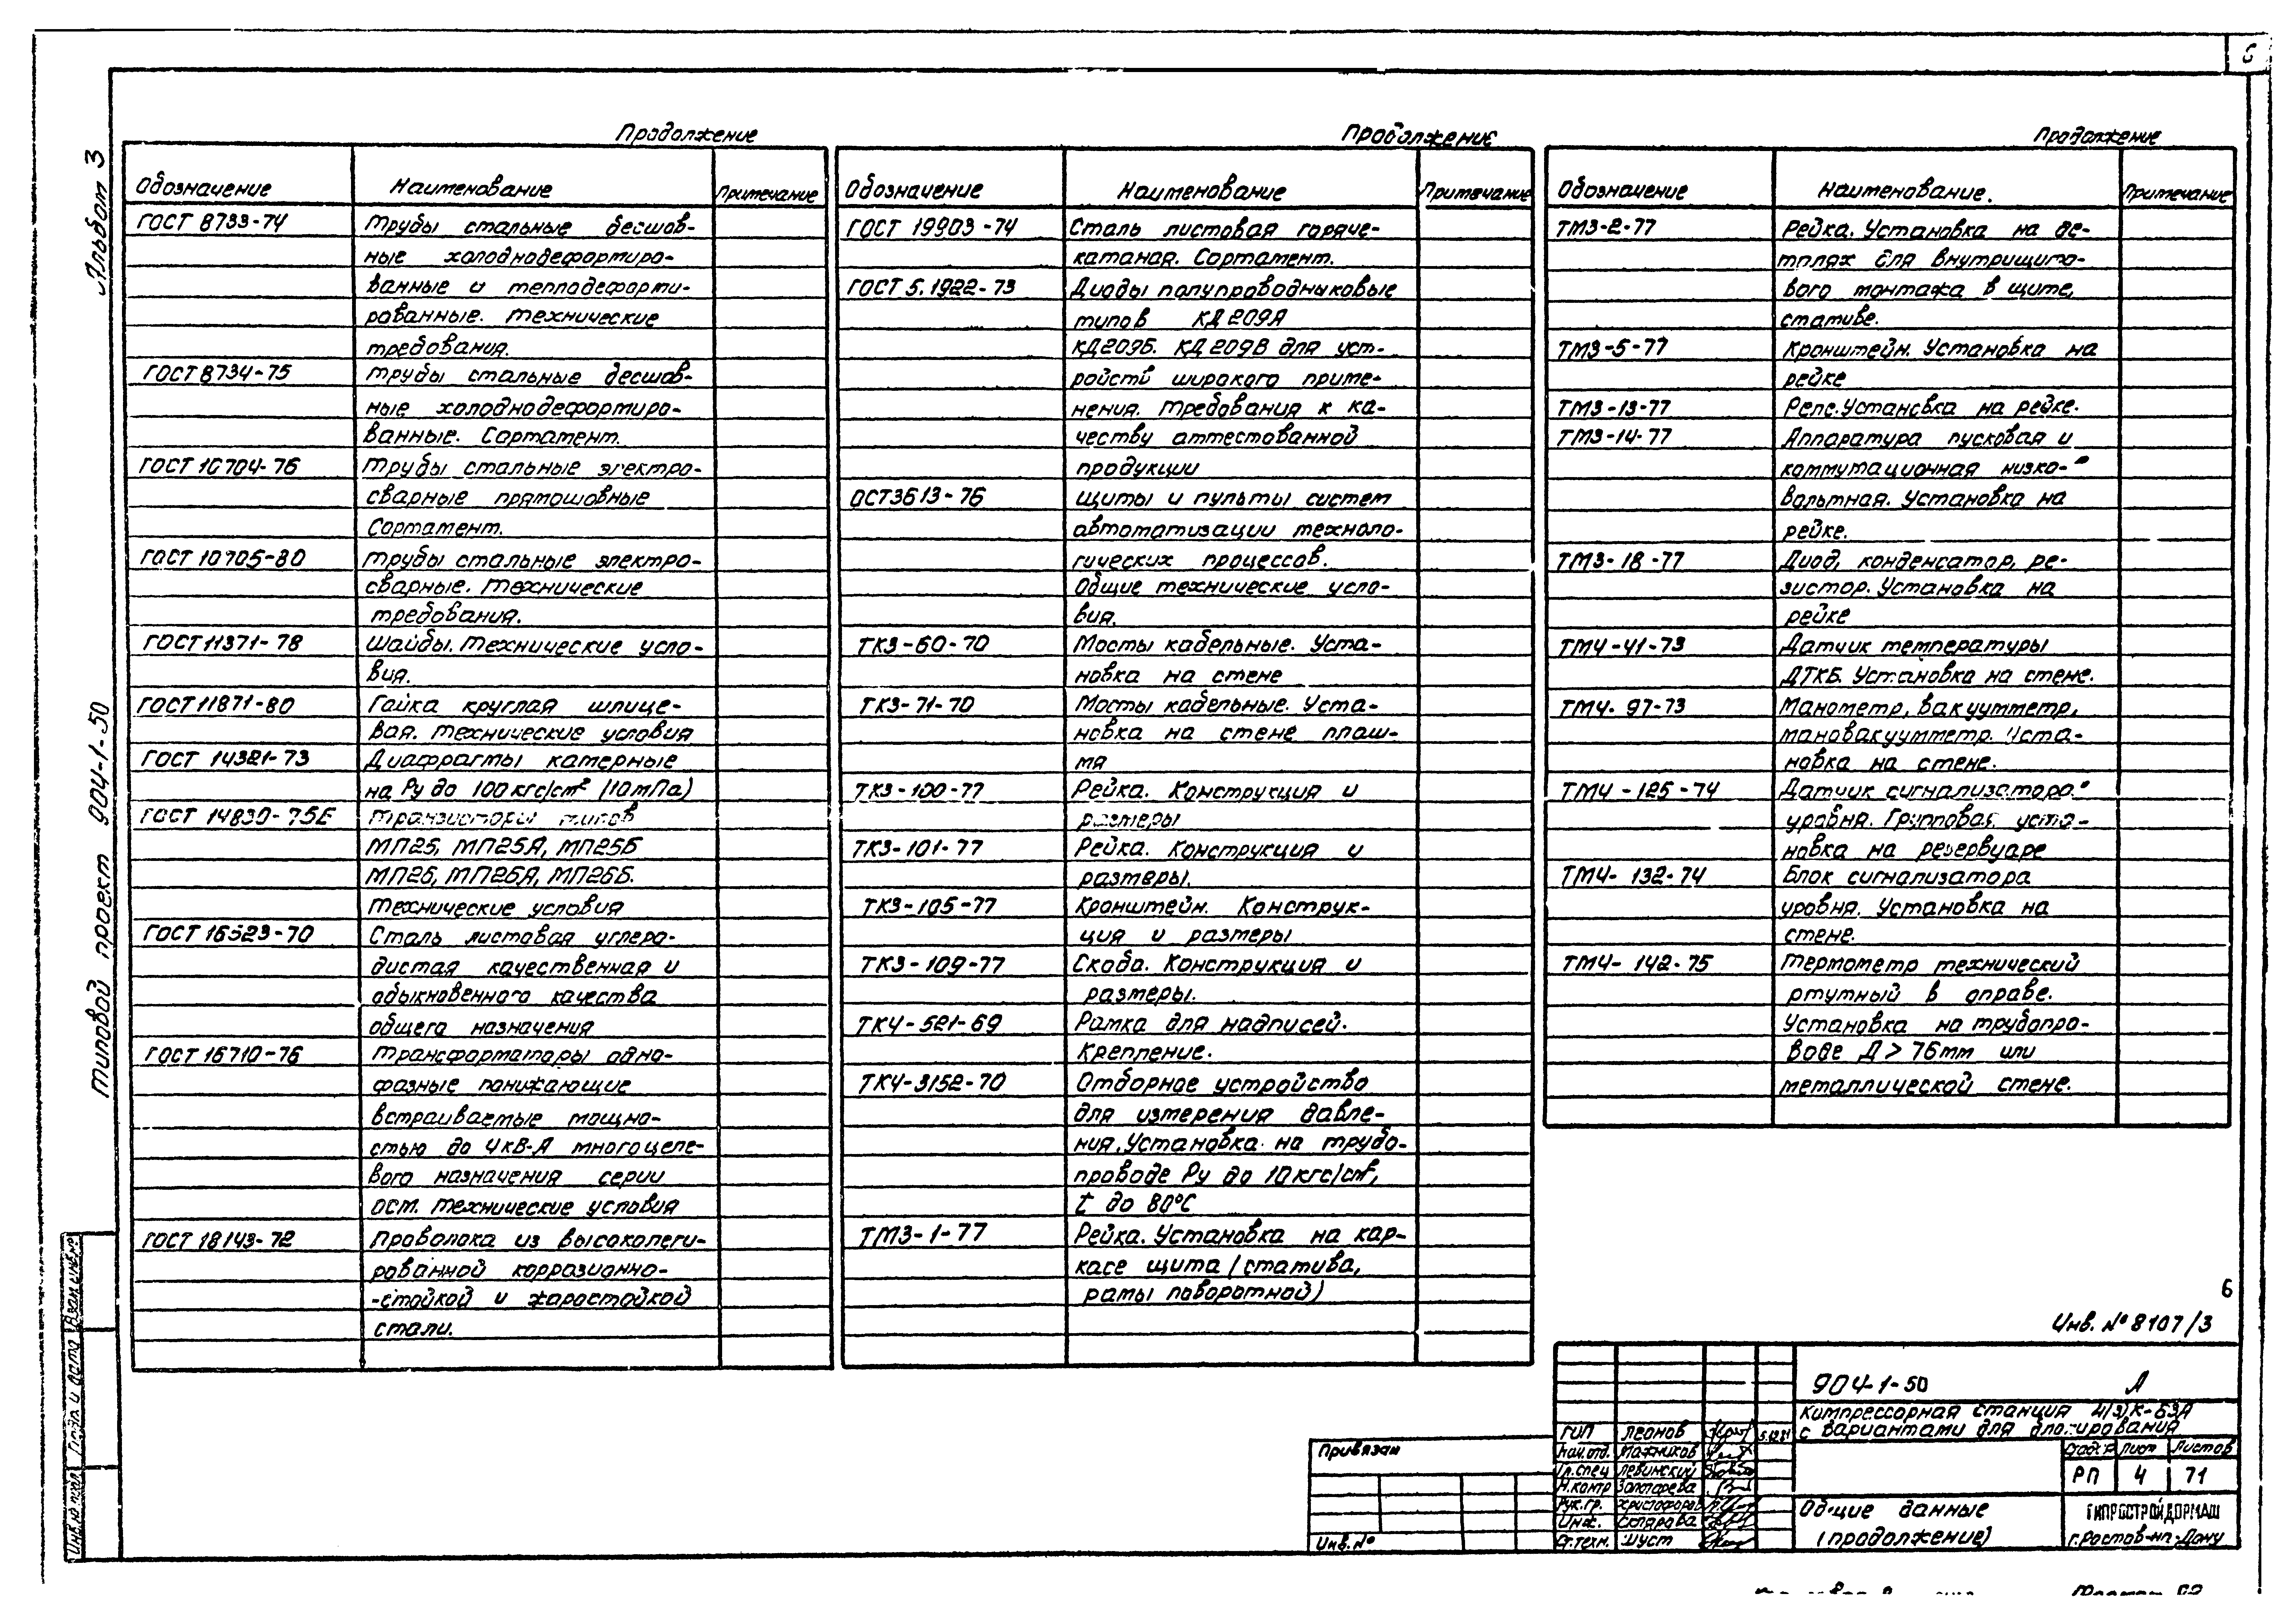 6
Альбом 3
Типовой проект 904-1-50
Продолжение
Обозначение Наименование Примечание
ГОСТ 8733-74 Трубы стальные бесшов-
ные холоднодеформиро-
ванные и теплодеформи-
рованные. Технические
требования.
ГОСТ 8734-75 Трубы стальные бесшов-
ные холоднодеформиро-
ванные. Сортамент.
ГОСТ 10704-76 Трубы стальные электро-
сварные прямошовные
Сортамент.
ГОСТ 10705-80 Трубы стальные электро-
сварные. Технические
требования.
ГОСТ 11371-78 Шайбы. Технические усло-
вия.
ГОСТ 11871-80 Гайка круглая шлице-
вая. Технические условия
ГОСТ 14321-73 Диафрагмы камерные
на Ру до 100 кгс/см² (10 мПа)
ГОСТ 14830-75Е Транзисторы типов
МП25, МП25А, МП25Б
МП26, МП26А, МП26Б.
Технические условия
ГОСТ 16523-70 Сталь листовая углеро-
дистая качественная и
обыкновенного качества
общего назначения
ГОСТ 16710-76 Трансформаторы одно-
фазные понижающие
встраиваемые мощно-
стью до 4 кВ-А многоцеле-
вого назначения серии
ОСМ. Технические условия
ГОСТ 18143-72 Проволока из высоколеги-
рованной коррозионно-
-стойкой и жаростойкой
стали.
Продолжение
Обозначение Наименование Примечание
ГОСТ 19903-74 Сталь листовая горяче-
катаная. Сортамент.
ГОСТ 5.1922-73 Диоды полупроводниковые
типов КД 209А
КД209Б. КД 209В для уст-
ройств широкого приме-
нения. Требования к ка-
честву аттестованной
продукции
ОСТ 3613-76 Щиты и пульты систем
автоматизации техноло-
гических процессов.
Общие технические усло-
вия.
ТК3-60-70 Мосты кабельные. Уста-
новка на стене
ТК3-71-70 Мосты кабельные. Уста-
новка на стене плаш-
мя
ТК3-100-77 Рейка. Конструкция и
размеры
ТК3-101-77 Рейка. Конструкция и
размеры.
ТК3-105-77 Кронштейн. Конструк-
ция и размеры
ТК3-109-77 Скоба. Конструкция и
размеры.
ТК4-521-69 Рамка для надписей.
Крепление.
ТК4-3152-70 Отборное устройство
для измерения давле-
ния. Установка на трубо-
проводе Ру до 10 кгс/см²,
t до 80°С
ТМ3-1-77 Рейка. Установка на кар-
касе щита /статива,
рамы поворотной)
Продолжение
Обозначение Наименование. Примечание
ТМ3-2-77 Рейка. Установка на пе-
тлях для внутрищито-
вого монтажа в щите,
стативе.
ТМ3-5-77 Кронштейн. Установка на
рейке
ТМ3-13-77 Реле. Установка на рейке.
ТМ3-14-77 Аппаратура пусковая и
коммутационная низко-
вольтная. Установка на
рейке.
ТМ3-18-77 Диод, конденсатор, ре-
зистор. Установка на
рейке
ТМ4-41-73 Датчик температуры
ДТКБ. Установка на стене.
ТМ4-97-73 Манометр, вакуумметр,
мановакуумметр. Уста-
новка на стене.
ТМ4-125-74 Датчик сигнализатора
уровня. Групповая уста-
новка на резервуаре
ТМ4-132-74 Блок сигнализатора
уровня. Установка на
стене.
ТМ4-142-75 Термометр технический
ртутный в оправе.
Установка на трубопро-
воде Д > 76мм или
металлической стене.
6
Инв. № 8107/3
904-1-50 А
Компрессорная станция 4(3)К-63А
с вариантами для блокирования
ГИП Леонов
Нач.отд. Мажников
Гл.спец Левинский
Н.контр Золотарева
Рук.гр. Христофоров
Инж. Склярова
Ст.техн. Шуст
Стадия Лист Листов
РП 4 71
Общие данные
(продолжение)
ГИПРОСТРОЙДОРМАШ
г.Ростов-на-Дону
Привязан
Инв. №
Инв.№ подл. Подп. и дата Взам.инв.№